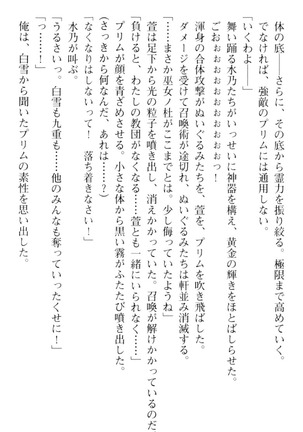 体の底――さらに、その底から霊力を振り絞る。極限まで高めていく。
でなければ、強敵のプリムには通用しない。
「いくわよ――」
舞い踊る水乃たちがいっせいに神器を構え、黄金の輝きをほとばしらせた。
ごおぉぉぉおぉぉおぉっ！
渾身の合体攻撃がぬいぐるみたちを、萱を、プリムを吹き飛ばした。
ダメージを受けて召喚術が途切れ、ぬいぐるみたちは軒並み消滅する。
「……まさか巫女ノ杜がここまでとは。少し侮っていたようね」
萱は足下から光の粒子を噴き出し、消えかかっていた。召喚が解けかかっているのだ。
「負けると、わたしの教団がなくなる……萱とも一緒にいられなく……」
プリムが顔を青ざめさせる。小さな体から黒い霧がふたたび噴き出した。
（さっきから何なんだ、あれは……？）
「なくなりはしないって！　落ち着きなさい！」
水乃が叫ぶ。
「うるさいっ。白雪も九重も……他のみんなも奪っていったくせに！」
「っ……！」
俺は、白雪から聞いたプリムの素性を思い出した。